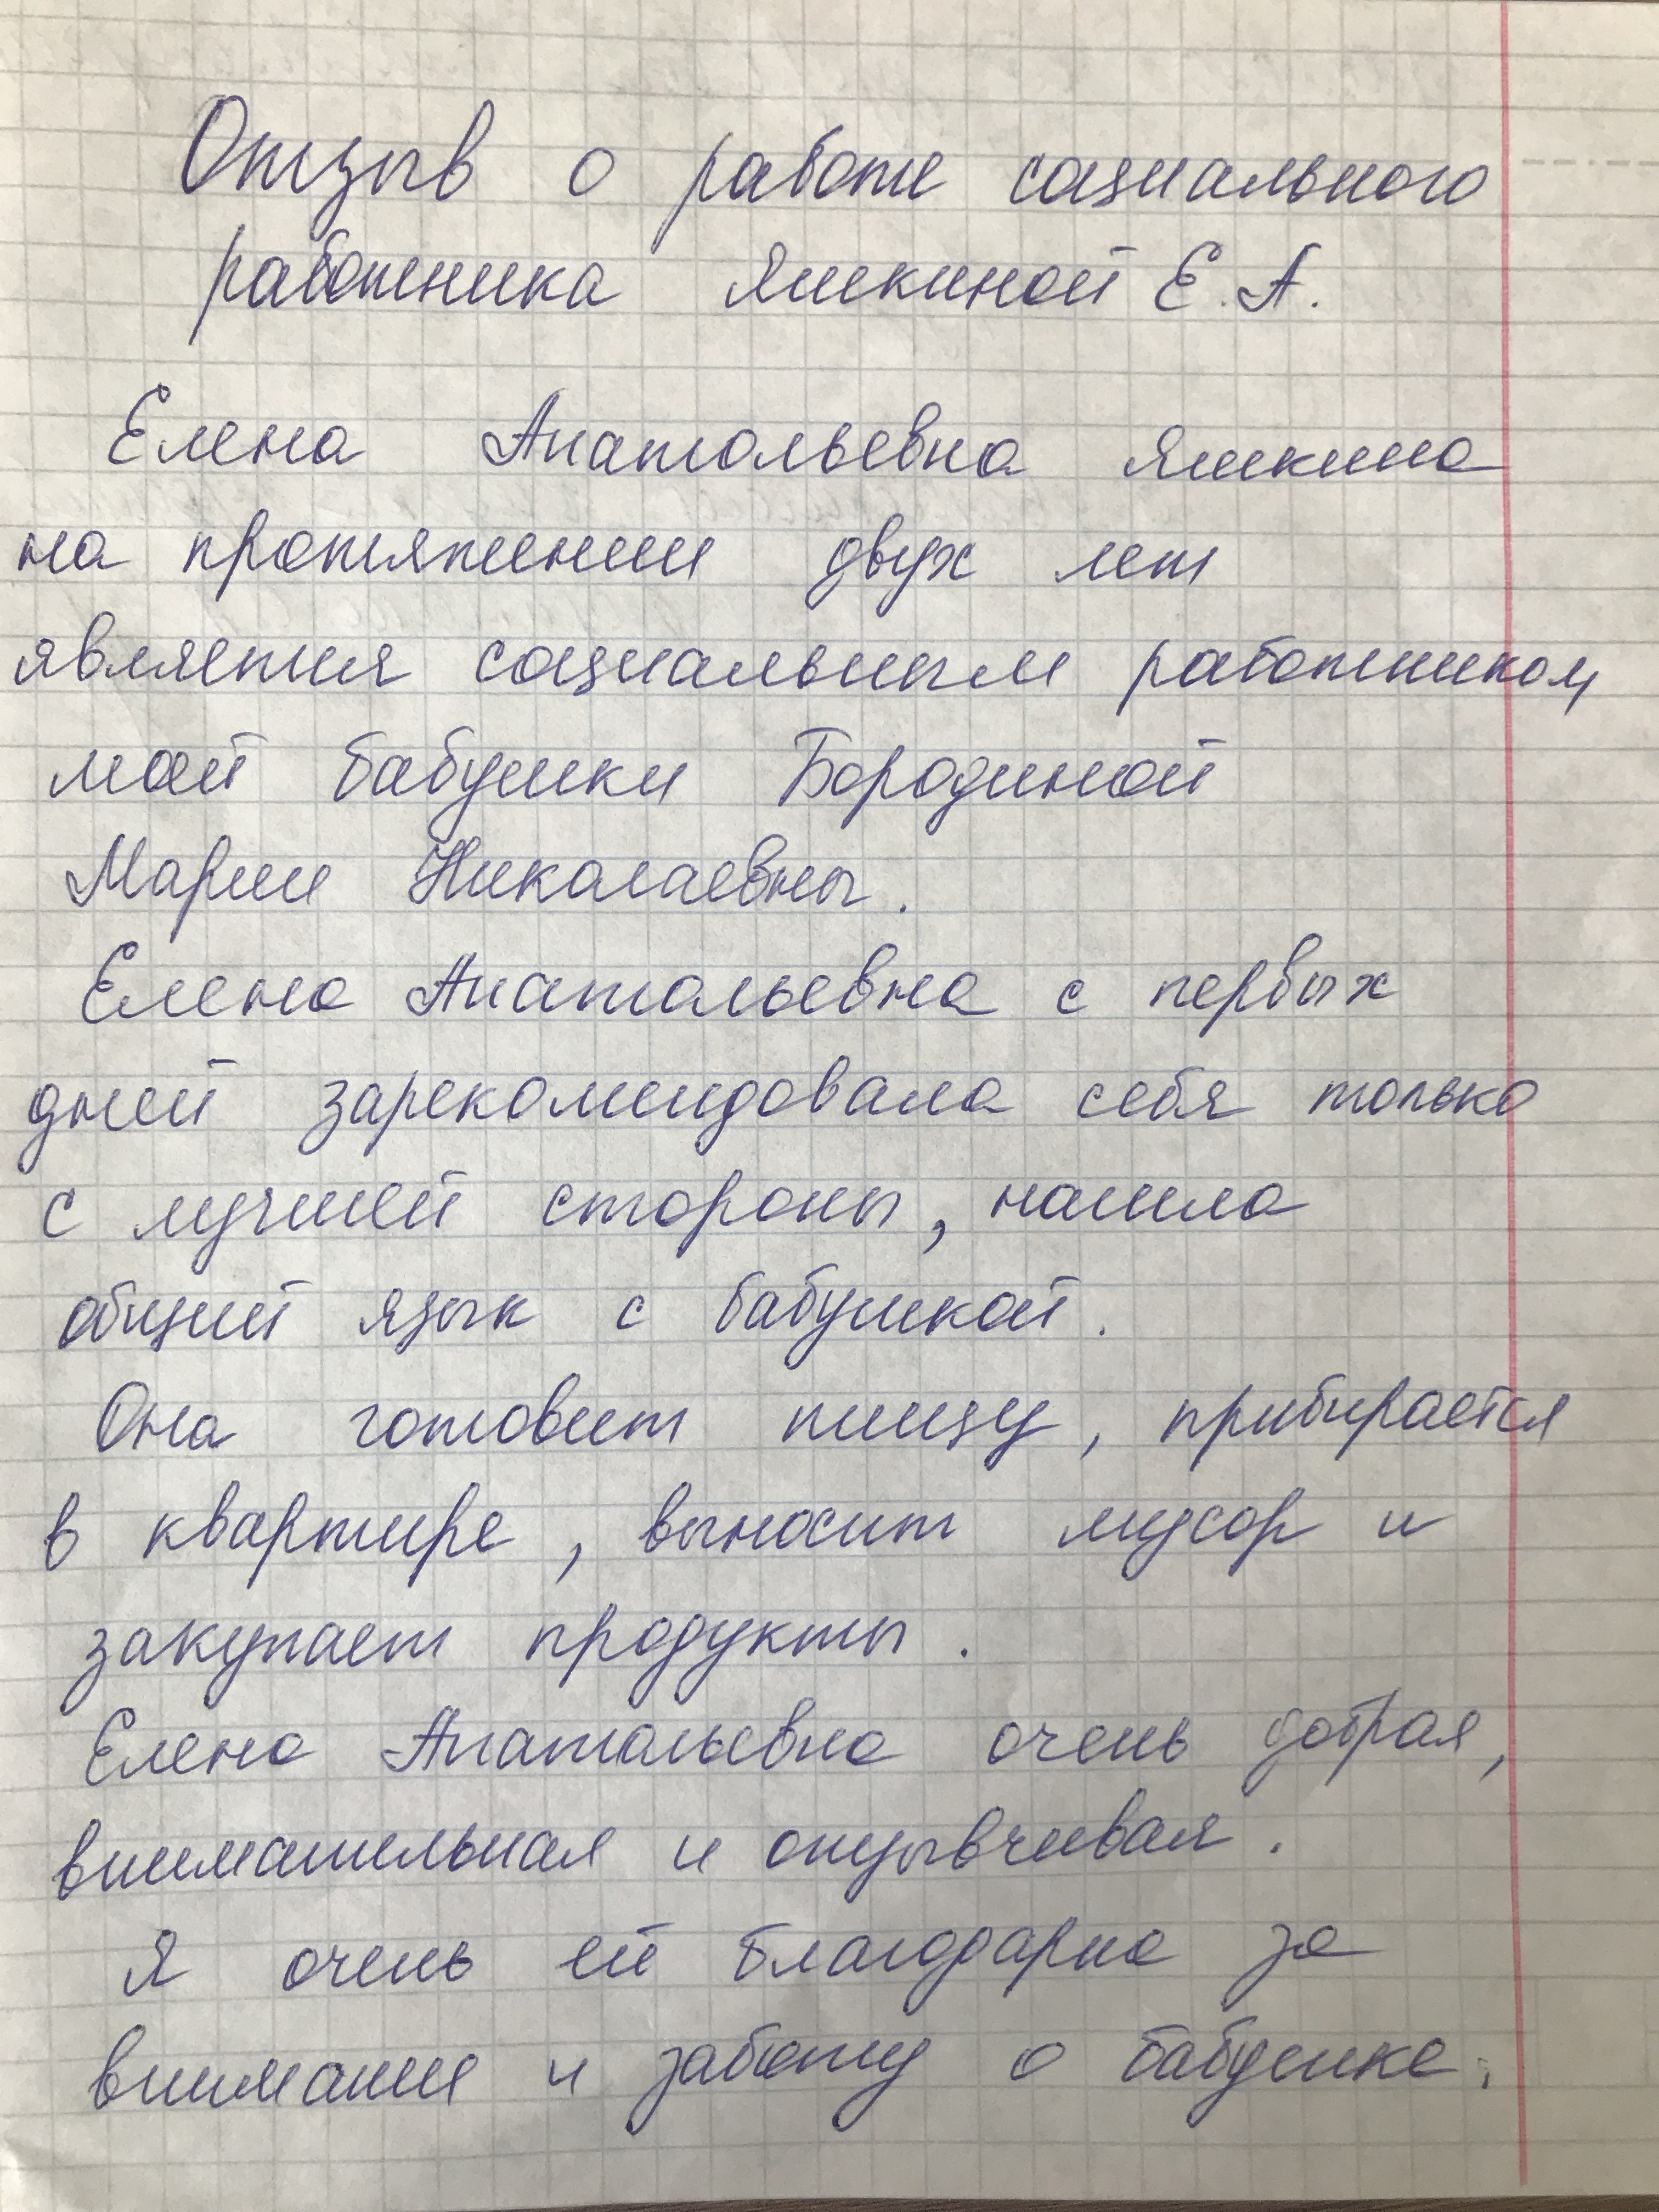 Отзыв о работе социального
работника Яшкиной Е. А.
Елена Анатольевна Яшкина
на протяжении двух лет
является социальным работником
моей бабушки Бородиной
Марии Николаевны.
Елена Анатольевна с первых
дней зарекомендовала себя только
с лучшей стороны, нашла
общий язык с бабушкой.
Она готовит пищу, прибирается
в квартире, выносит мусор и
закупает продукты.
Елена Анатольевна очень добрая,
внимательная и отзывчивая.
Я очень ей благодарна за
внимание и заботу о бабушке.